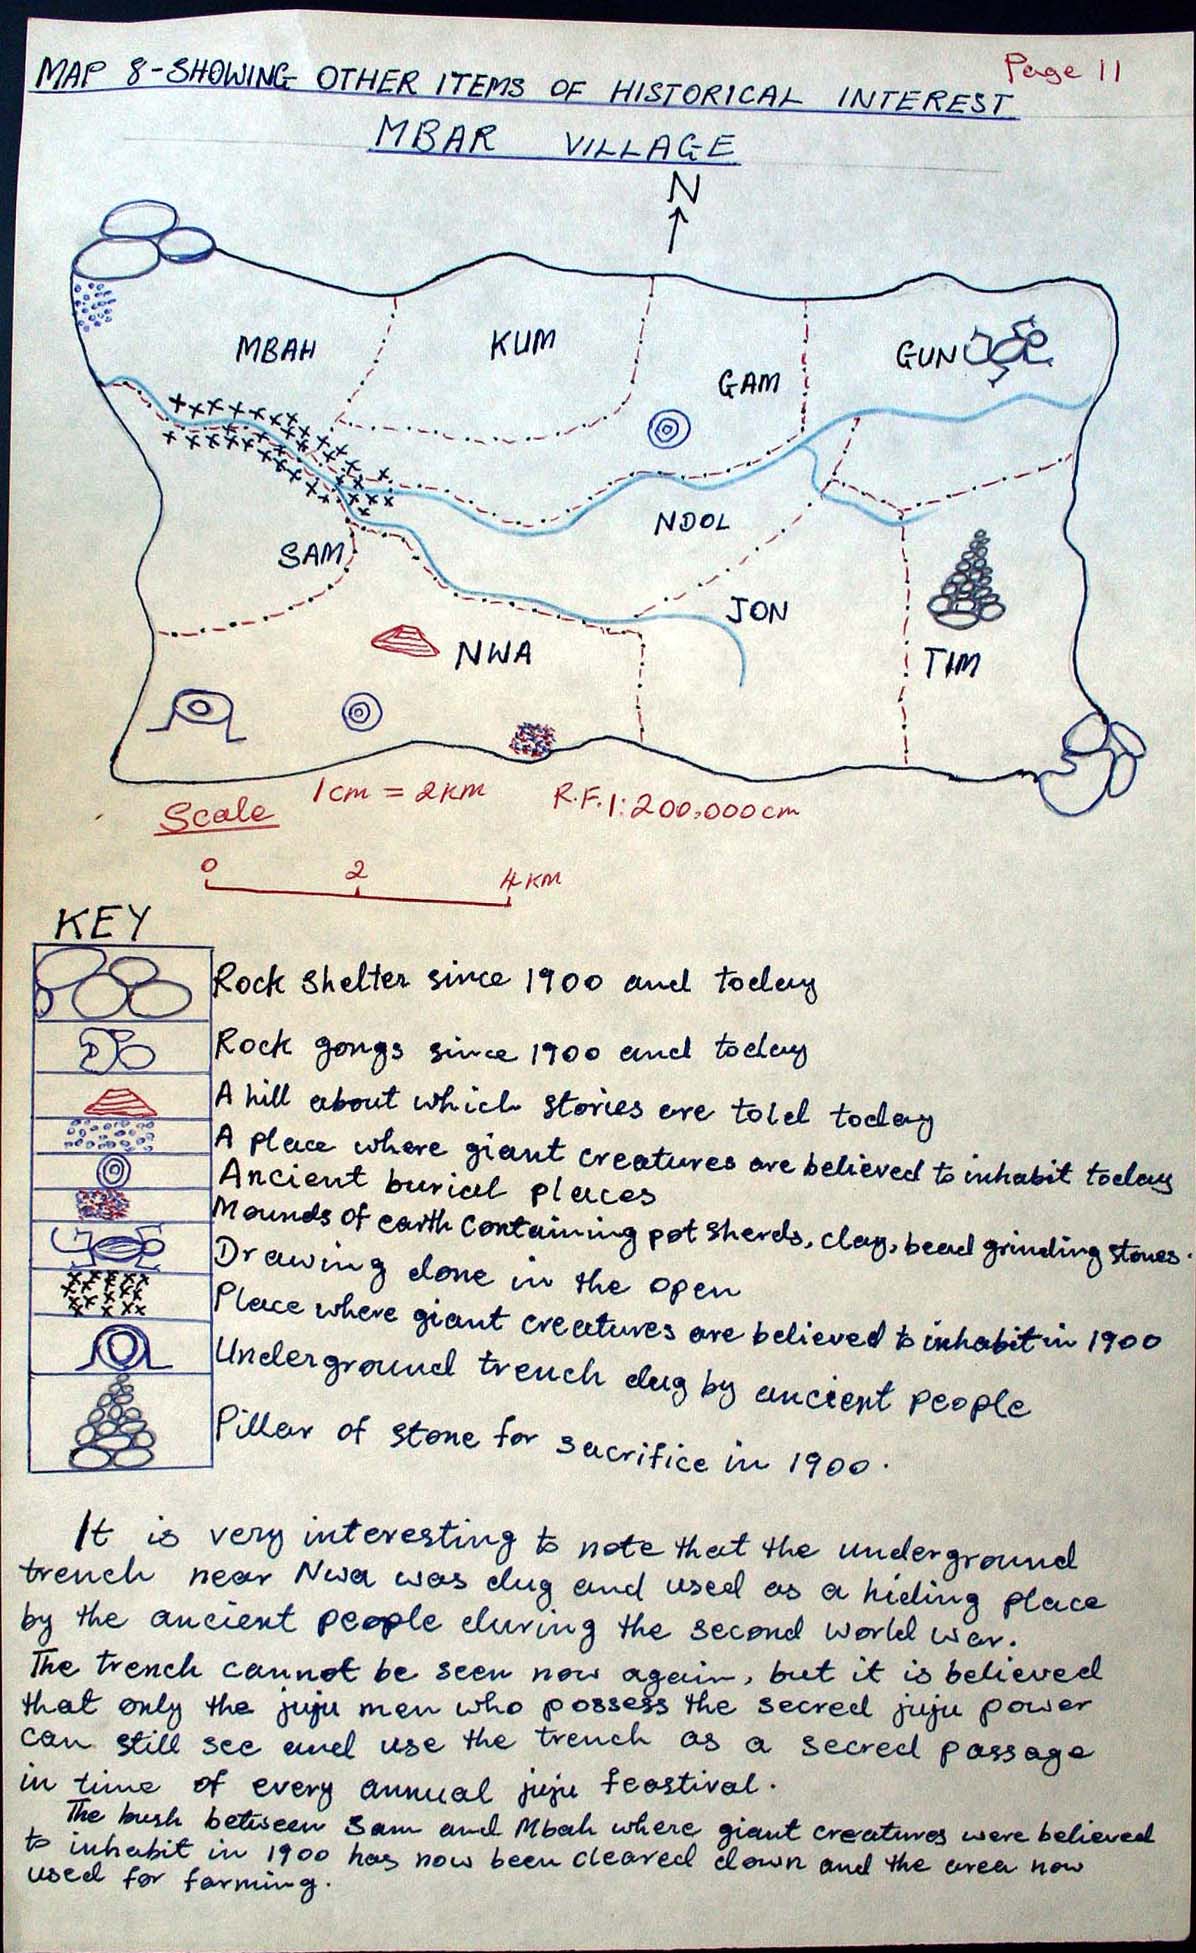 Page 11
MAP 8-SHOWING OTHER ITEMS OF HISTORICAL INTEREST
MBAR VILLAGE
N
MBAH
KUM
GAM
GUN
NDOL
SAM
JON
NWA
TIM
Scale 1cm = 2KM R.F. 1:200,000cm
0 2 4KM
KEY
Rock Shelter since 1900 and today
Rock gongs since 1900 and today
A hill about which stories are told today
A place where giant creatures are believed to inhabit today
Ancient burial places
Mounds of earth containing pot sherds, clay, bead grinding stones.
Drawing done in the open
Place where giant creatures are believed to inhabit in 1900
Underground trench dug by ancient people
Pillar of stone for sacrifice in 1900.
It is very interesting to note that the underground
trench near Nwa was dug and used as a hiding place
by the ancient people during the second world war.
The trench cannot be seen now again, but it is believed
that only the juju men who possess the secred juju power
can still see and use the trench as a secred passage
in time of every annual juju feastival.
The bush between Sam and Mbah where giant creatures were believed
to inhabit in 1900 has now been cleared down and the area now
used for farming.